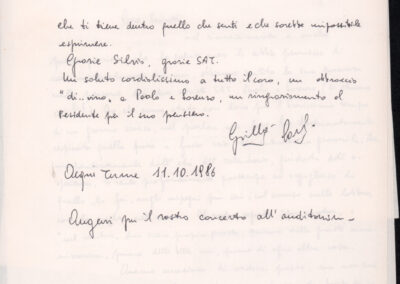 che ti tiene dentro quello che senti e che sarebbe impossibile
esprimere.
Grazie Silvio, grazie SAT.
Un saluto cordialissimo a tutto il coro, un abbraccio
"di..vino, a Paolo e Lorenzo, un ringraziamento al
Presidente per il suo pensiero.
Acqui Terme 11.10.1986
Auguri per il vostro concerto all'auditorium -